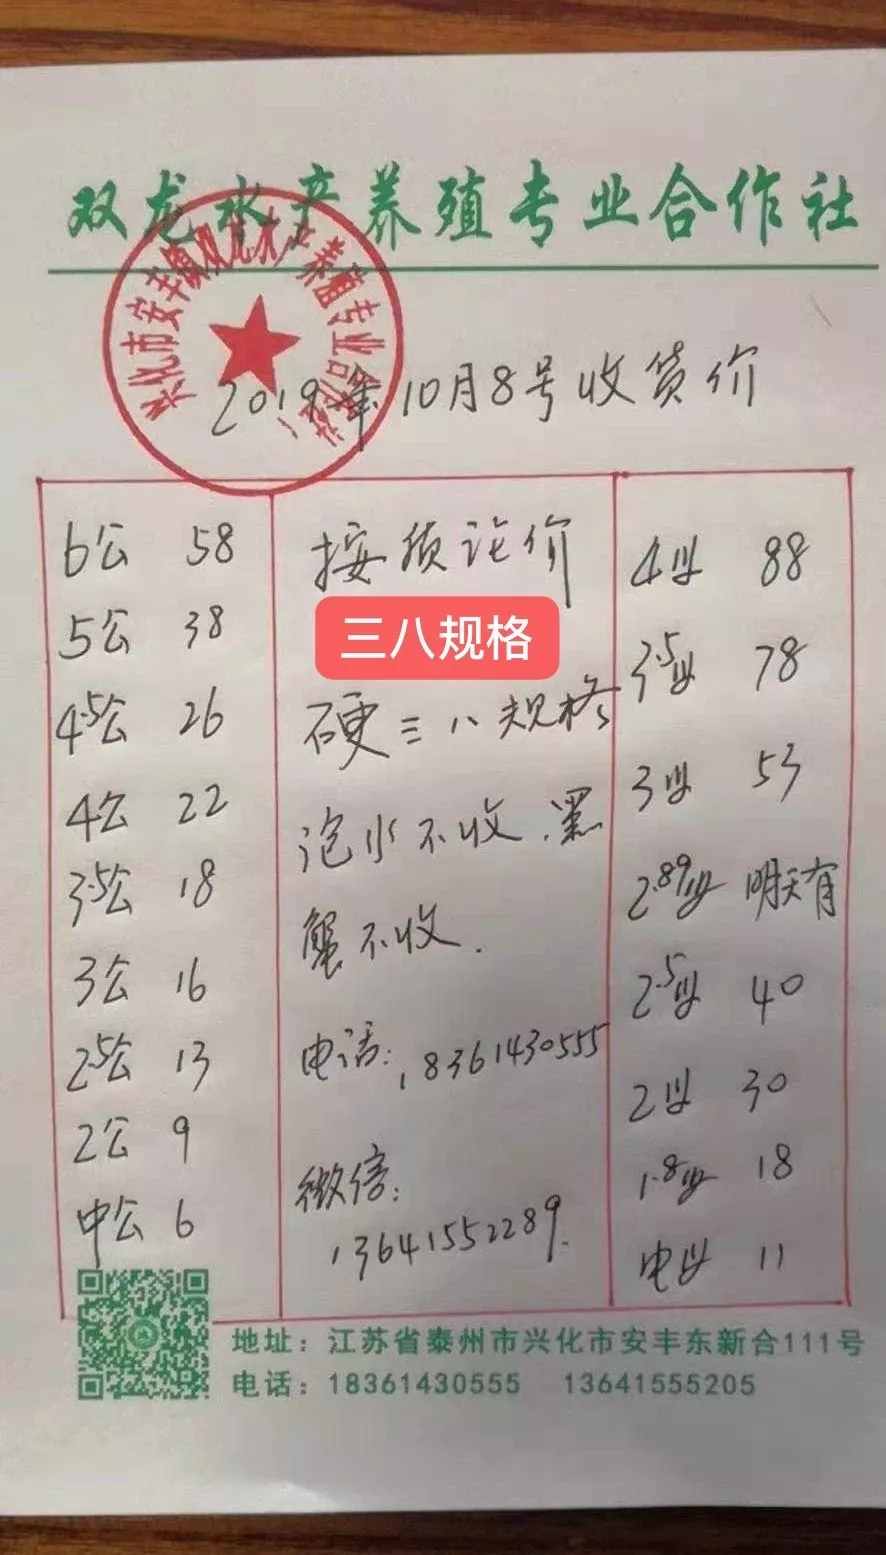 双龙水产养殖专业合作社
兴化市安丰镇双龙水产养殖专业合作社
2019年10月8号收货价
6公 58
5公 38
4.5公 26
4公 22
3.5公 18
3公 16
2.5公 13
2公 9
中公 6
按质论价
三八规格
硬三八规格
泡水不收.黑
蟹不收.
电话:18361430555
微信:
13641552289.
4母 88
3.5母 78
3母 53
2.89母 明天有
2.5母 40
2母 30
1.8母 18
电母 11
地址：江苏省泰州市兴化市安丰东新合111号
电话：18361430555 13641555205